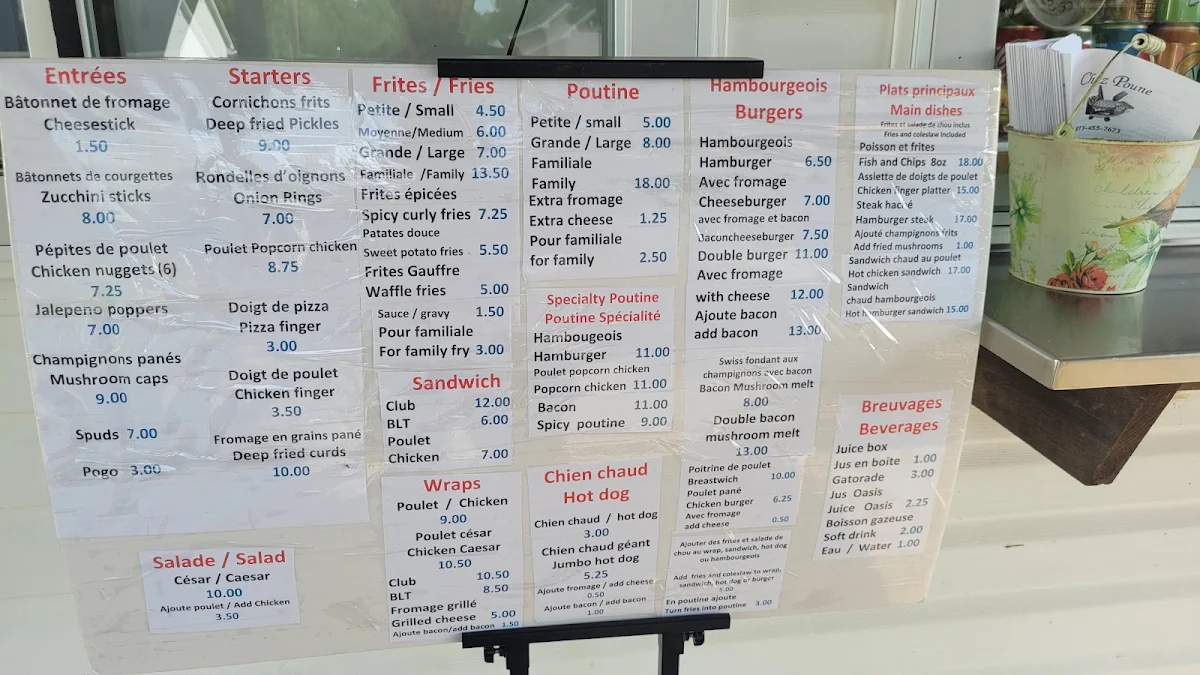 Entrées
Bâtonnet de fromage
Cheesestick
1.50
Bâtonnets de courgettes
Zucchini sticks
8.00
Pépites de poulet
Chicken nuggets (6)
7.25
Jalepeno poppers
7.00
Champignons panés
Mushroom caps
9.00
Spuds 7.00
Pogo 3.00
Starters
Cornichons frits
Deep fried Pickles
9.00
Rondelles d'oignons
Onion Rings
7.00
Poulet Popcorn chicken
8.75
Doigt de pizza
Pizza finger
3.00
Doigt de poulet
Chicken finger
3.50
Fromage en grains pané
Deep fried curds
10.00
Salade / Salad
César / Caesar
10.00
Ajoute poulet / Add Chicken
3.50
Frites / Fries
Petite / Small 4.50
Moyenne/Medium 6.00
Grande / Large 7.00
Familiale /Family 13.50
Frites épicées
Spicy curly fries 7.25
Patates douce
Sweet potato fries 5.50
Frites Gauffre
Waffle fries 5.00
Sauce / gravy 1.50
Pour familiale
For family fry 3.00
Sandwich
Club 12.00
BLT 6.00
Poulet
Chicken 7.00
Wraps
Poulet / Chicken
9.00
Poulet césar
Chicken Caesar
10.50
Club 10.50
BLT 8.50
Fromage grillé
Grilled cheese 5.00
Ajoute bacon/add bacon 1.50
Poutine
Petite / small 5.00
Grande / Large 8.00
Familiale
Family 18.00
Extra fromage
Extra cheese 1.25
Pour familiale
for family 2.50
Specialty Poutine
Poutine Spécialité
Hambougeois
Hamburger 11.00
Poulet popcorn chicken
Popcorn chicken 11.00
Bacon 11.00
Spicy poutine 9.00
Chien chaud
Hot dog
Chien chaud / hot dog
3.00
Chien chaud géant
Jumbo hot dog
5.25
Ajoute fromage / add cheese
0.50
Ajoute bacon / add bacon
1.00
Hambourgeois
Burgers
Hambourgeois
Hamburger 6.50
Avec fromage
Cheeseburger 7.00
avec fromage et bacon
Baconcheeseburger 7.50
Double burger 11.00
Avec fromage
with cheese 12.00
Ajoute bacon
add bacon 13.00
Swiss fondant aux
champignons avec bacon
Bacon Mushroom melt
8.00
Double bacon
mushroom melt
13.00
Poitrine de poulet
Breastwich 10.00
Poulet pané
Chicken burger 6.25
Avec fromage
add cheese 0.50
Ajouter des frites et salade de
chou au wrap, sandwich, hot dog
ou hambourgeois
Add fries and coleslaw to wrap,
sandwich, hot dog or burger
5.00
En poutine ajoute
Turn fries into poutine 3.00
Plats principaux
Main dishes
Frites et salade de chou inclus
Fries and coleslaw Included
Poisson et frites
Fish and Chips 8oz 18.00
Assiette de doigts de poulet
Chicken finger platter 15.00
Steak haché
Hamburger steak 17.00
Ajouté champignons frits
Add fried mushrooms 1.00
Sandwich chaud au poulet
Hot chicken sandwich 17.00
Sandwich
chaud hambourgeois
Hot hamburger sandwich 15.00
Breuvages
Beverages
Juice box
Jus en boite 1.00
Gatorade 3.00
Jus Oasis
Juice Oasis 2.25
Boisson gazeuse
Soft drink 2.00
Eau / Water 1.00
Chez Poune